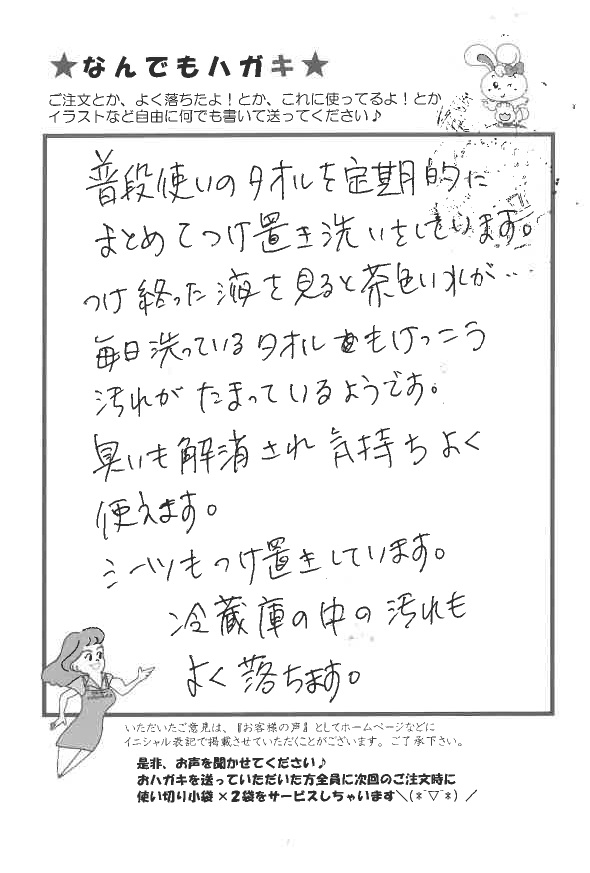 ★なんでもハガキ★
ご注文とか、よく落ちたよ！とか、これに使ってるよ！とか
イラストなど自由に何でも書いて送ってください♪
普段使いのタオルを定期的に
まとめてつけ置き洗いをしています。
つけ終った液を見ると茶色い水が…
毎日洗っているタオルもけっこう
汚れがたまっているようです。
臭いも解消され気持ちよく
使えます。
シーツもつけ置きしています。
冷蔵庫の中の汚れも
よく落ちます。
いただいたご意見は、『お客様の声』としてホームページなどに
イニシャル表記で掲載させていただくことがございます。ご了承下さい。
是非、お声を聞かせてください♪
おハガキを送っていただいた方全員に次回のご注文時に
使い切り小袋×2袋をサービスしちゃいます＼(*ˉ▽ˉ*)／